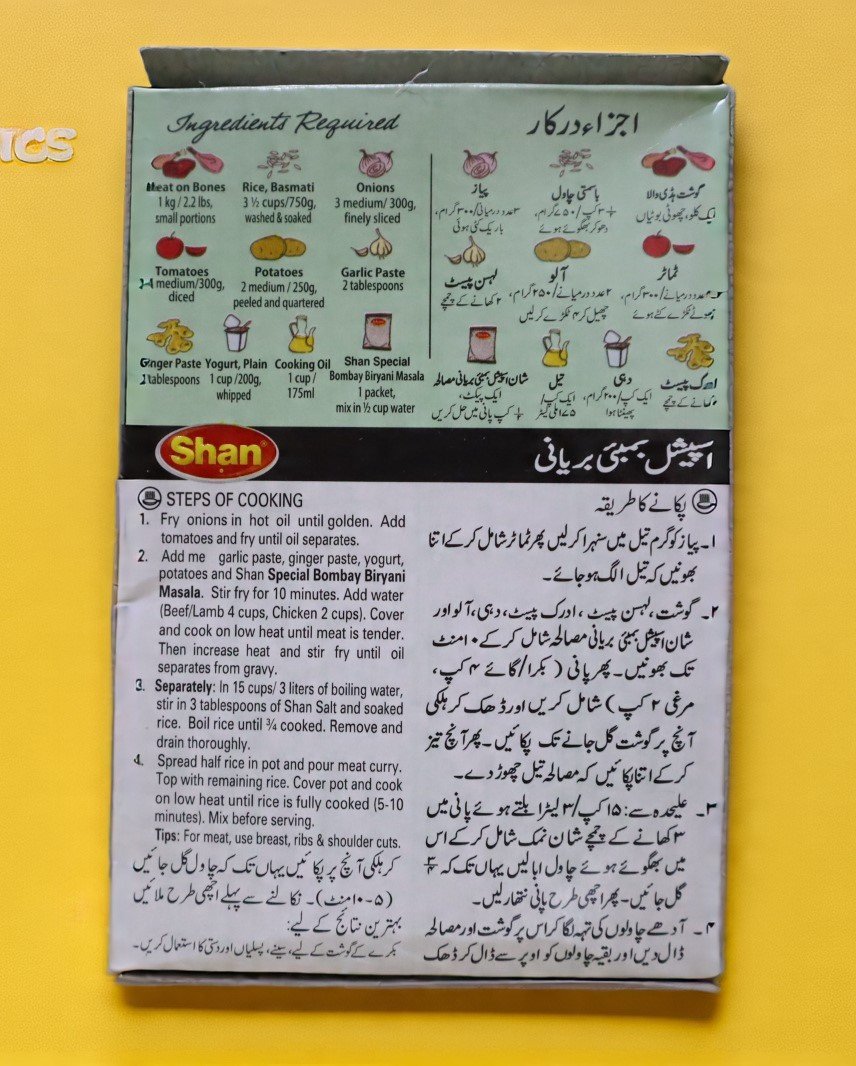 ICS
Ingredients Required
Meat on Bones
1 kg / 2.2 lbs,
small portions
Rice, Basmati
3 ½ cups/750g,
washed & soaked
Onions
3 medium/ 300g,
finely sliced
Tomatoes
medium/300g,
diced
Potatoes
2 medium / 250g,
peeled and quartered
Garlic Paste
2 tablespoons
Ginger Paste
tablespoons
Yogurt, Plain
1 cup /200g,
whipped
Cooking Oil
1 cup /
175ml
Shan Special
Bombay Biryani Masala
1 packet,
mix in ½ cup water
اجزاء درکار
گوشت ہڈی والا
ایک کلو، چھوٹی بوٹیاں
باسمتی چاول
دھو کر بھگوئے ہوئے
پیاز
۳عدد درمیانی/۳۰۰گرام،
باریک کٹی ہوئی
ٹماٹر
عدد درمیانے/۳۰۰گرام،
چھوٹے ٹکڑے کٹے ہوئے
آلو
۲عدد درمیانے/۲۵۰گرام،
چھیل کر ۴ ٹکڑے کر لیں
لہسن پیسٹ
۲ کھانے کے چمچے
ادرک پیسٹ
کھانے کے چمچے
دہی
ایک کپ/۲۰۰گرام،
پھینٹا ہوا
تیل
ایک کپ/
۱۷۵ملی لیٹر
شان اسپیشل بمبئی بریانی مصالحہ
ایک پیکٹ،
کپ پانی میں حل کریں
Shan
اسپیشل بمبئی بریانی
STEPS OF COOKING
1. Fry onions in hot oil until golden. Add
tomatoes and fry until oil separates.
2. Add me garlic paste, ginger paste, yogurt,
potatoes and Shan Special Bombay Biryani
Masala. Stir fry for 10 minutes. Add water
(Beef/Lamb 4 cups, Chicken 2 cups). Cover
and cook on low heat until meat is tender.
Then increase heat and stir fry until oil
separates from gravy.
3. Separately: In 15 cups/ 3 liters of boiling water,
stir in 3 tablespoons of Shan Salt and soaked
rice. Boil rice until ¾ cooked. Remove and
drain thoroughly.
4. Spread half rice in pot and pour meat curry.
Top with remaining rice. Cover pot and cook
on low heat until rice is fully cooked (5-10
minutes). Mix before serving.
Tips: For meat, use breast, ribs & shoulder cuts.
پکانے کا طریقہ
۱۔ پیاز کو گرم تیل میں سنہرا کرلیں پھر ٹماٹر شامل کر کے اتنا
بھونیں کہ تیل الگ ہو جائے۔
۲۔ گوشت، لہسن پیسٹ، ادرک پیسٹ، دہی، آلو اور
شان اسپیشل بمبئی بریانی مصالحہ شامل کر کے ۱۰ منٹ
تک بھونیں۔ پھر پانی (بکرا/گائے ۴ کپ،
مرغی ۲ کپ) شامل کریں اور ڈھک کر ہلکی
آنچ پر گوشت گل جانے تک پکائیں۔ پھر آنچ تیز
کر کے اتنا پکائیں کہ مصالحہ تیل چھوڑ دے۔
۳۔ علیحدہ سے: ۱۵ کپ/۳ لیٹر ابلتے ہوئے پانی میں
۳ کھانے کے چمچے شان نمک شامل کر کے اس
میں بھگوئے ہوئے چاول ابالیں یہاں تک کہ ¾
گل جائیں۔ پھر اچھی طرح پانی نتھار لیں۔
۴۔ آدھے چاولوں کی تہہ لگا کر اس پر گوشت اور مصالحہ
ڈال دیں اور بقیہ چاولوں کو اوپر سے ڈال کر ڈھک
کر ہلکی آنچ پر پکائیں یہاں تک کہ چاول گل جائیں
(۵-۱۰ منٹ)۔ نکالنے سے پہلے اچھی طرح ملائیں
بہترین نتائج کے لیے:
بکرے کے گوشت کے لیے، سینے، پسلیاں اور دستی کا استعمال کریں۔